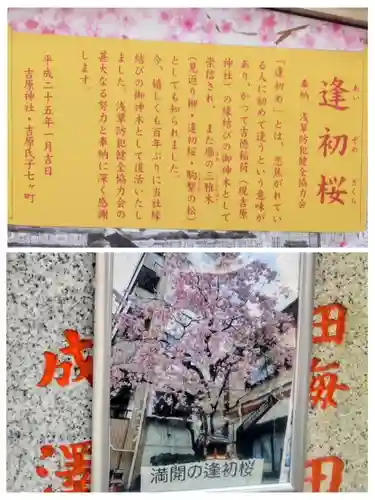 逢初桜
あい
ぞめ
さくら
奉納 浅草防犯健全協力会
「逢初め」とは、恋焦がれてい
る人に初めて逢うという意味が
あり、かつて吉徳稲荷(現吉原
神社)の縁結びの御神木として
崇信され、また廓の三雅木
(見返り柳・逢初桜・駒繋の松)
としても知られました。
今、嬉しくも百年ぶりに当社縁
結びの御神木として復活いたし
ました。浅草防犯健全協力会の
甚大なる努力と奉納に深く感謝
します。
平成二十五年一月吉日
吉原神社・吉原氏子七ヶ町
満開の逢初桜
成澤
田毎田